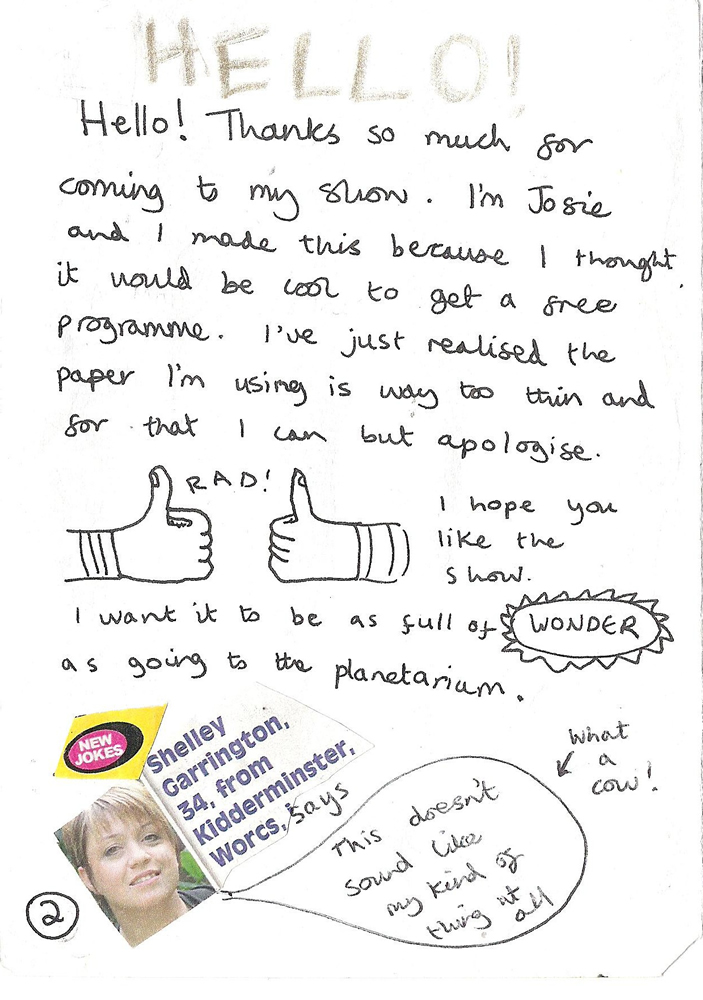 HELLO!
Hello! Thanks so much for
coming to my show. I'm Josie
and I made this because I thought
it would be cool to get a free
programme. I've just realised the
paper I'm using is way too thin and
for that I can but apologise.
RAD!
I hope you
like the
show.
I want it to be as full of WONDER
as going to the planetarium.
NEW
JOKES
Shelley
Garrington,
34, from
Kidderminster,
Worcs, says
This doesn't
sound like
my kind of
thing at all
What
a
cow!
2